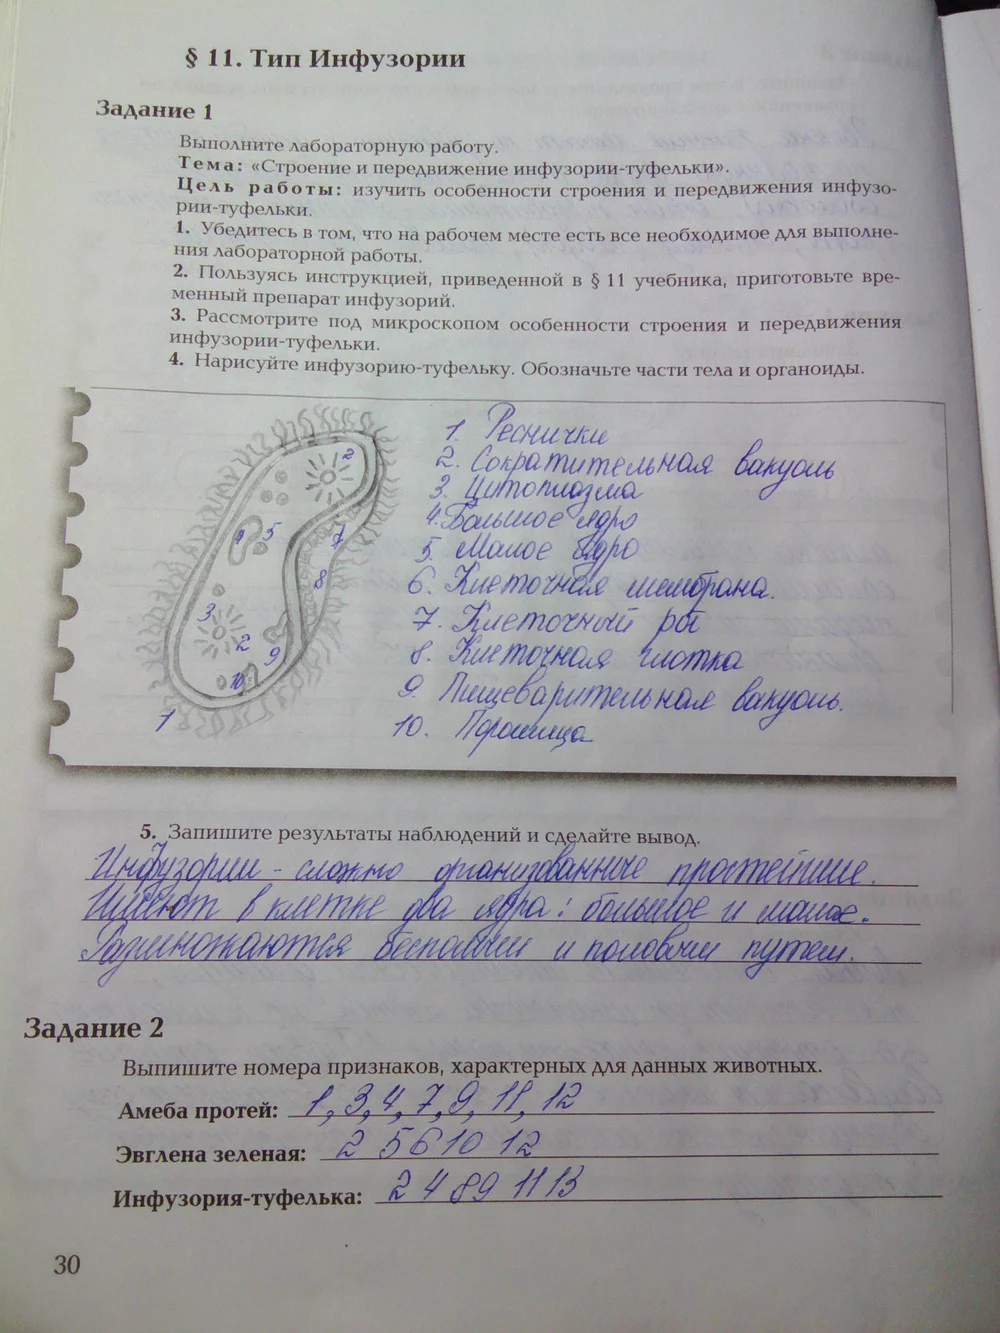 § 11. Тип Инфузории
Задание 1
Выполните лабораторную работу.
Тема: «Строение и передвижение инфузории-туфельки».
Цель работы: изучить особенности строения и передвижения инфузо-
рии-туфельки.
1. Убедитесь в том, что на рабочем месте есть все необходимое для выполне-
ния лабораторной работы.
2. Пользуясь инструкцией, приведенной в § 11 учебника, приготовьте вре-
менный препарат инфузорий.
3. Рассмотрите под микроскопом особенности строения и передвижения
инфузории-туфельки.
4. Нарисуйте инфузорию-туфельку. Обозначьте части тела и органоиды.
2
4 5 7
8
3
2
9
10
1
1. Реснички
2. Сократительная вакуоль
3. Цитоплазма
4. Большое ядро
5. Малое ядро
6. Клеточная мембрана.
7. Клеточный рот
8. Клеточная глотка
9. Пищеварительная вакуоль.
10. Порошица
5. Запишите результаты наблюдений и сделайте вывод.
Инфузории - сложно организованные простейшие.
Имеют в клетке два ядра: большое и малое.
Размножаются бесполым и половым путем.
Задание 2
Выпишите номера признаков, характерных для данных животных.
Амеба протей: 1, 3, 4, 7, 9, 11, 12
Эвглена зеленая: 2 5 6 10 12
Инфузория-туфелька: 2 4 8 9 11 13
30